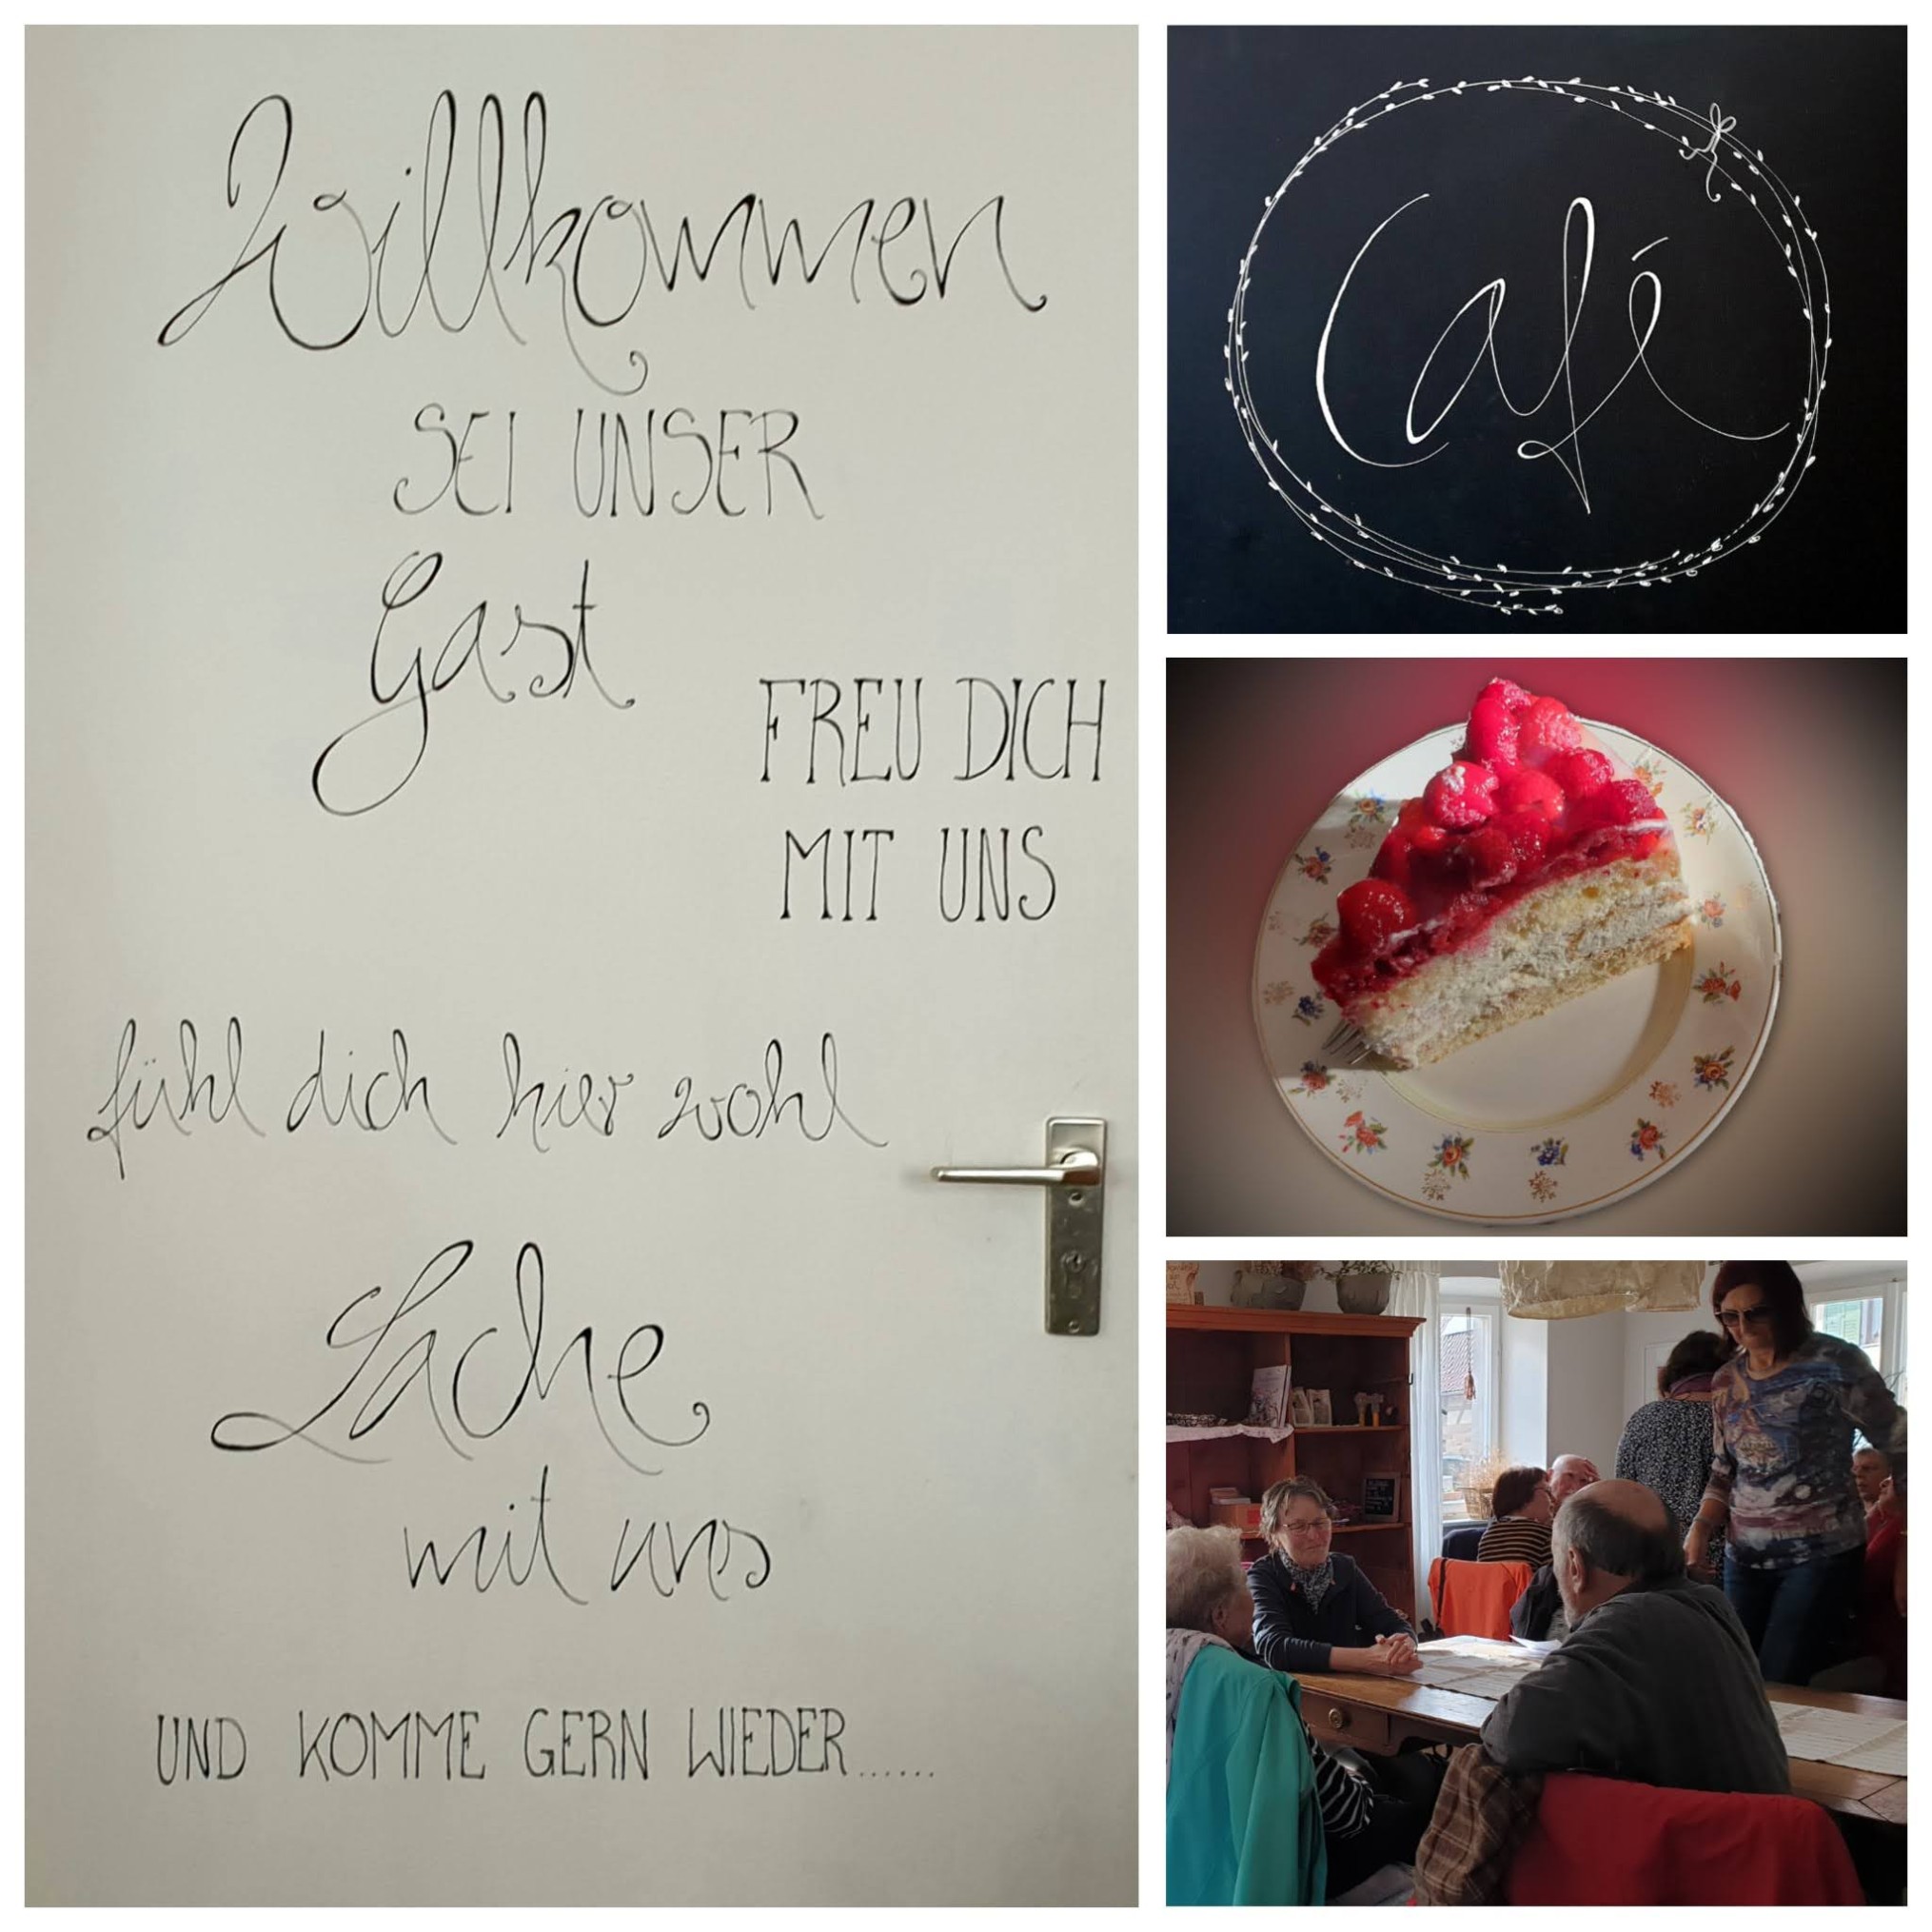 Willkommen
SEI UNSER
Gast
FREU DICH
MIT UNS
fühl dich hier wohl
Lache
mit uns
UND KOMME GERN WIEDER......
Café